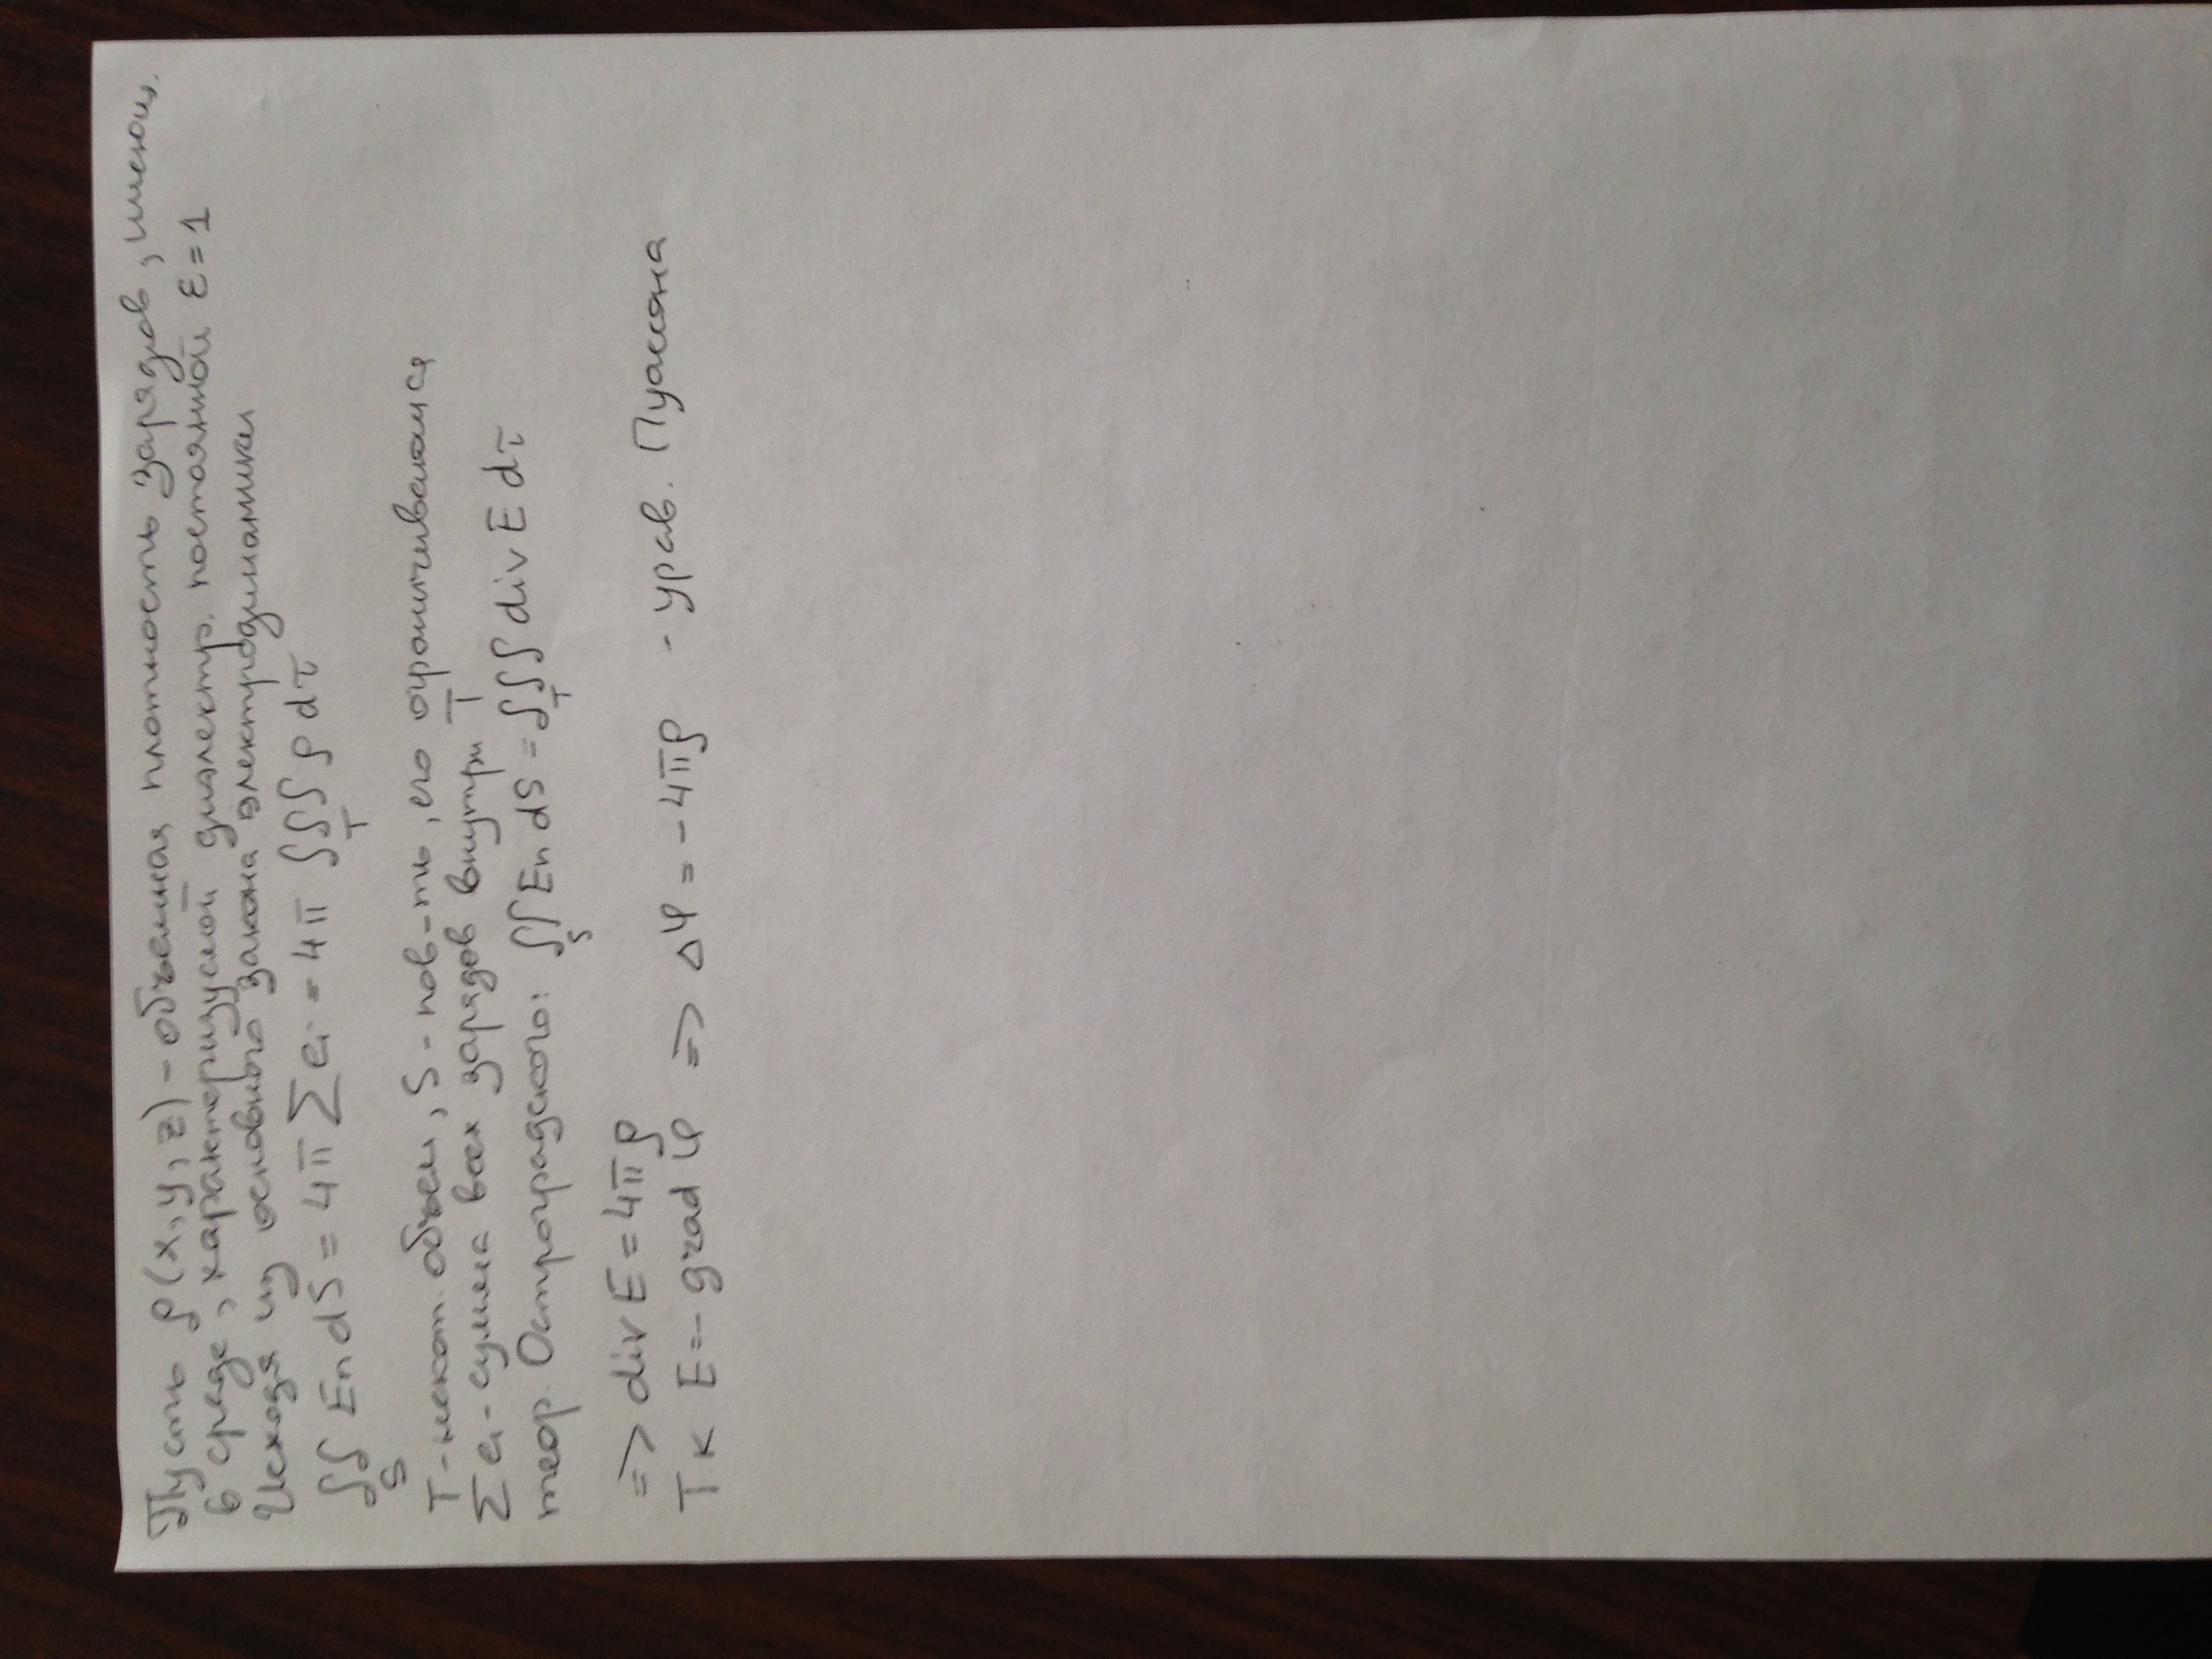 Пусть ρ(x,y,z) - объемная плотность зарядов, имеющ.
в среде, характеризуемой диалектр. постоянной ε=1
Исходя из основного закона электродинамики
∬_S En dS = 4π ∑ ei = 4π ∭_T ρ dτ
T - некот. объем, S - пов-ть, его ограничивающая
∑ ei - сумма всех зарядов внутри T
теор. Остроградского: ∬_S En dS = ∭_T div E dτ
=> div E = 4πρ
Тк E = - grad φ => Δφ = - 4πρ - урав. Пуассона